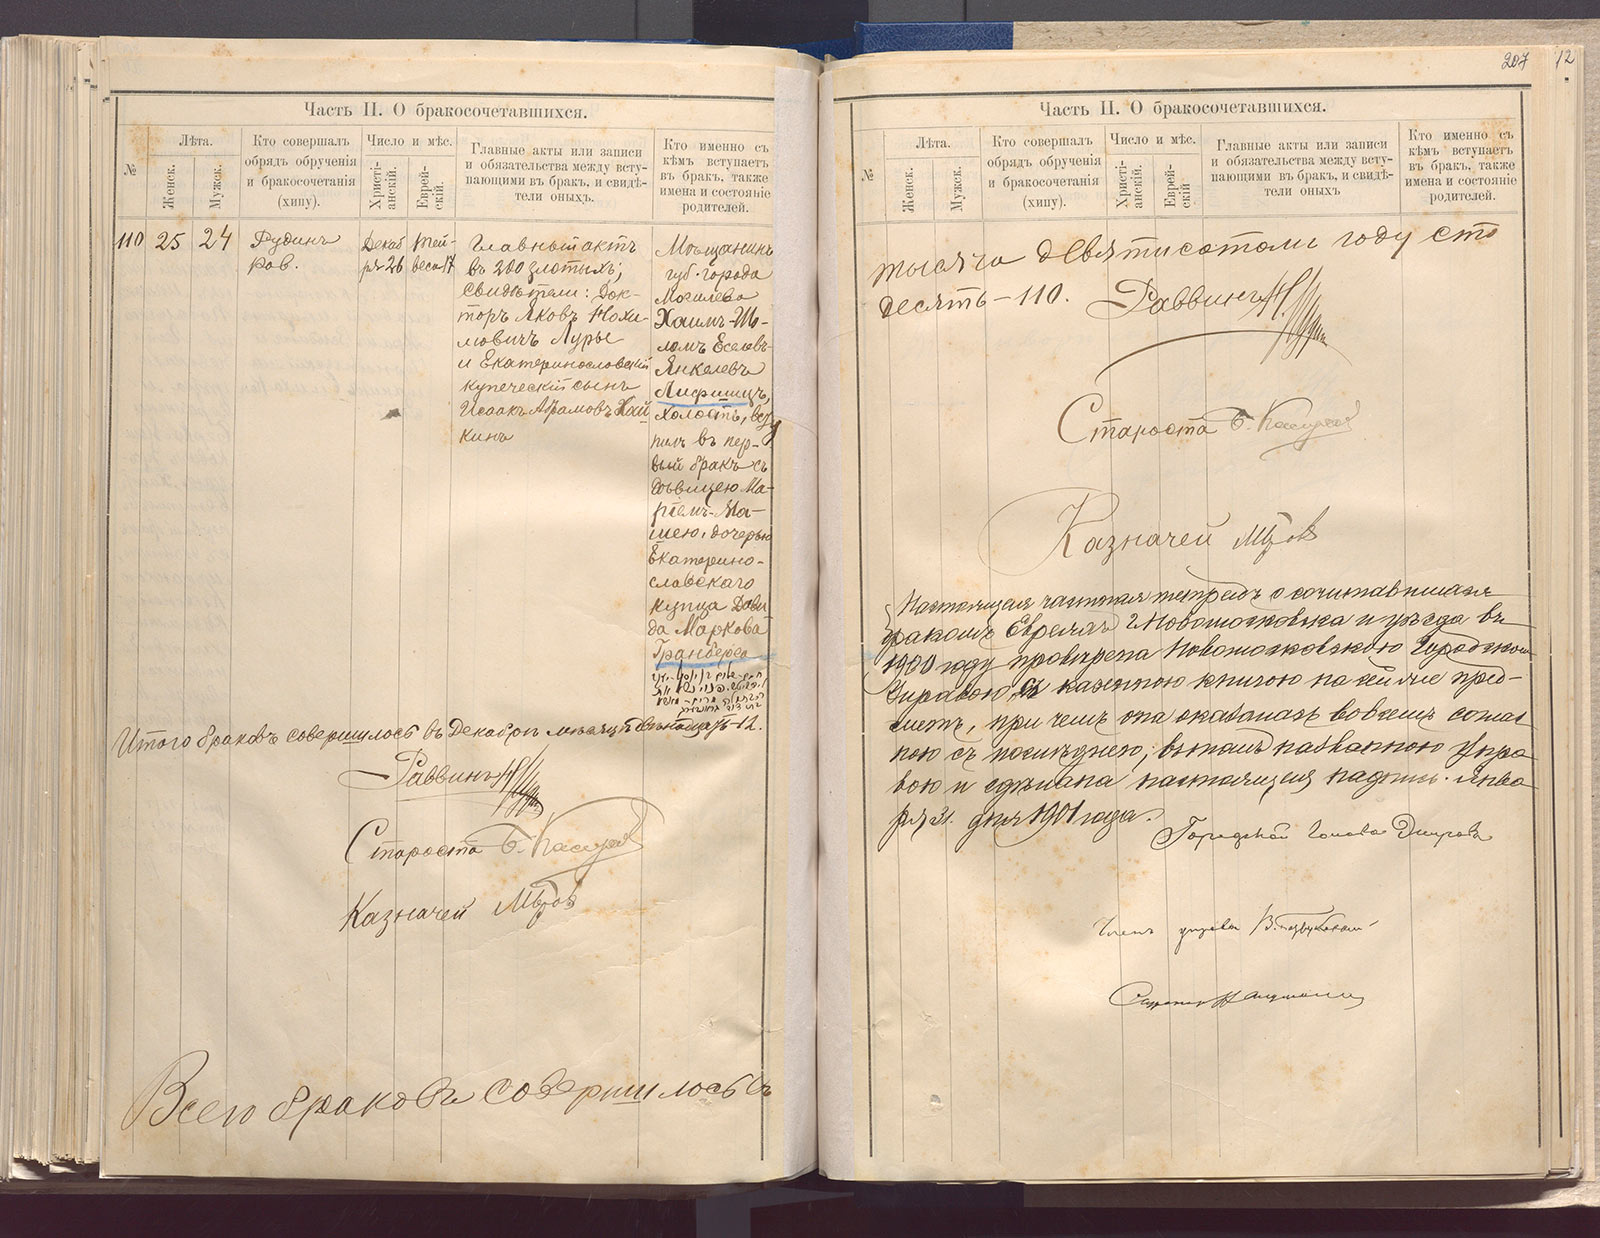 Часть II. О бракосочетавшихся.
№
Лѣта.
Женск.
Мужск.
Кто совершалъ
обрядъ обрученія
и бракосочетанія
(хипу).
Число и мѣс.
Христі-
анскій.
Еврей-
скій.
Главные акты или записи
и обязательства между всту-
пающими въ бракъ, и свидѣ-
тели оныхъ.
Кто именно съ
кѣмъ вступаетъ
въ бракъ, также
имена и состояніе
родителей.
110
25
24
Рудинъ
Рав.
Декаб
ря 26
Тей-
весъ 17
Главный актъ
въ 200 злотыхъ;
свидѣтели: Док-
торъ Яковъ Нохи-
мовичъ Лурье
и Екатеринославскій
купеческій сынъ
Исаакъ Абрамовъ Хай
кинъ
Мѣщанинъ
губ. города
Могилева
Хаимъ-Шо-
ломъ Еселевъ-
Янкелевъ
Лифшицъ,
холостъ, всту
пилъ въ пер-
вый бракъ съ
дѣвицею Ма-
ріемъ-Ма-
шею, дочерью
Екатерино-
славскаго
купца Дави
да Маркова
Гранберга
Итого браковъ совершилось въ Декабрѣ мѣсяцѣ двѣнадцать-12.
Раввинъ
Староста Б.
Казначей
Всего браковъ совершилось въ
207
12
Часть II. О бракосочетавшихся.
№
Лѣта.
Женск.
Мужск.
Кто совершалъ
обрядъ обрученія
и бракосочетанія
(хипу).
Число и мѣс.
Христі-
анскій.
Еврей-
скій
Главные акты или записи
и обязательства между всту-
пающими въ бракъ, и свидѣ-
тели оныхъ
Кто именно съ
кѣмъ вступаетъ
въ бракъ, также
имена и состояніе
родителей.
тысяча девятисотомъ году сто
десять-110. Раввинъ
Староста Б.
Казначей
Настоящая частная тетрадь о сочитавшихся
бракомъ Евреяхъ г. Новомосковска и уѣзда въ
1900 году провѣрена Новомосковскою Городскою
Управою съ казенною книгою на сей же пред-
метъ, при чемъ она оказалась во всемъ соглас
ною съ послѣднею; въ чемъ названною Упра
вою и сдѣлана настоящая надпись. Янва
ря 21. дня 1901 года.
Городской Голова
Членъ управы В.
Секретарь